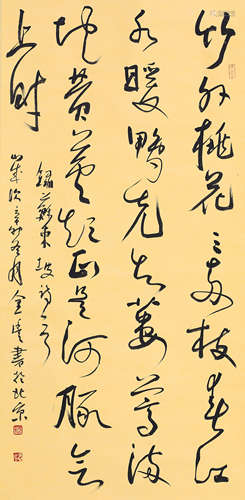 竹外桃花三两枝春江
水暖鸭先知蒌蒿满
地芦芽短正是河豚欲
上时
录苏东坡诗一首
岁次辛卯冬月金书于北京